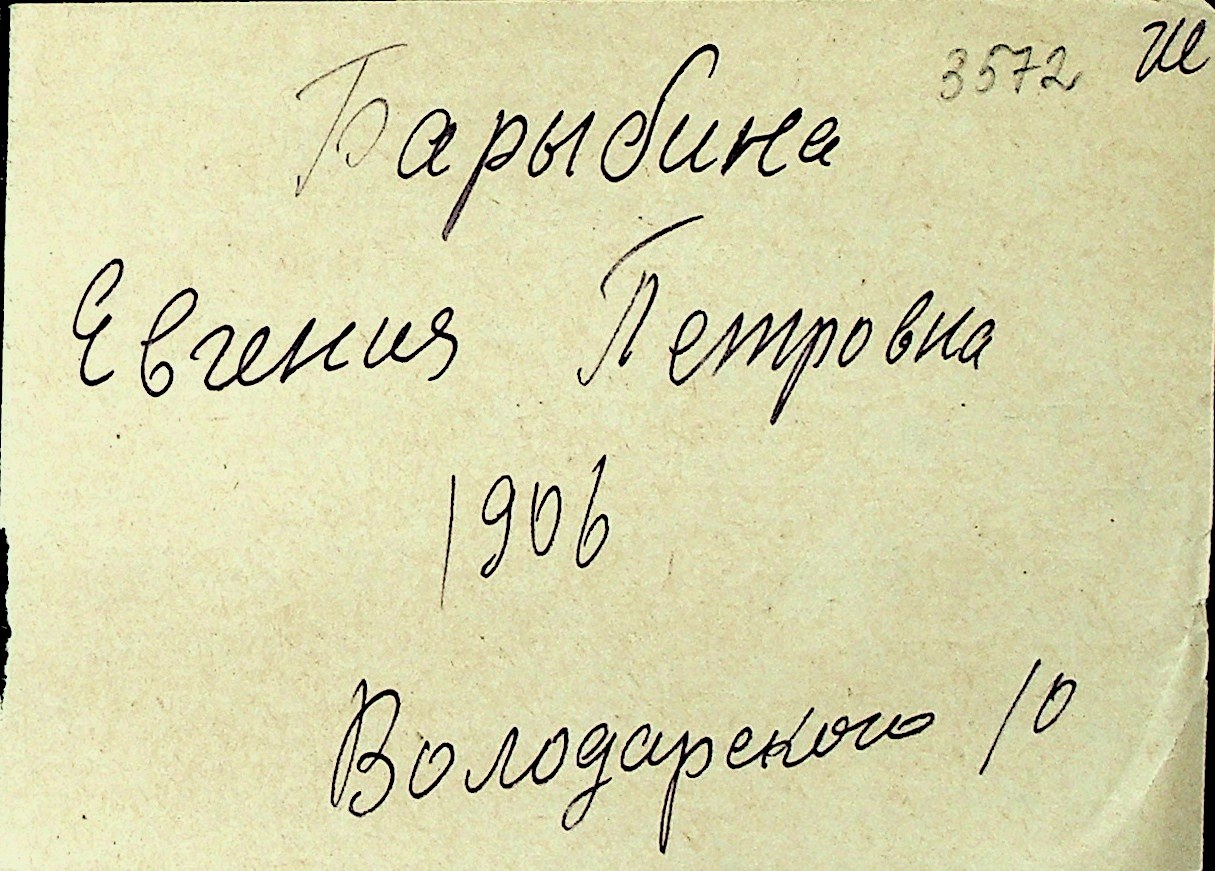 3572
Барыбина
Евгения Петровна
1906
Володарского 10